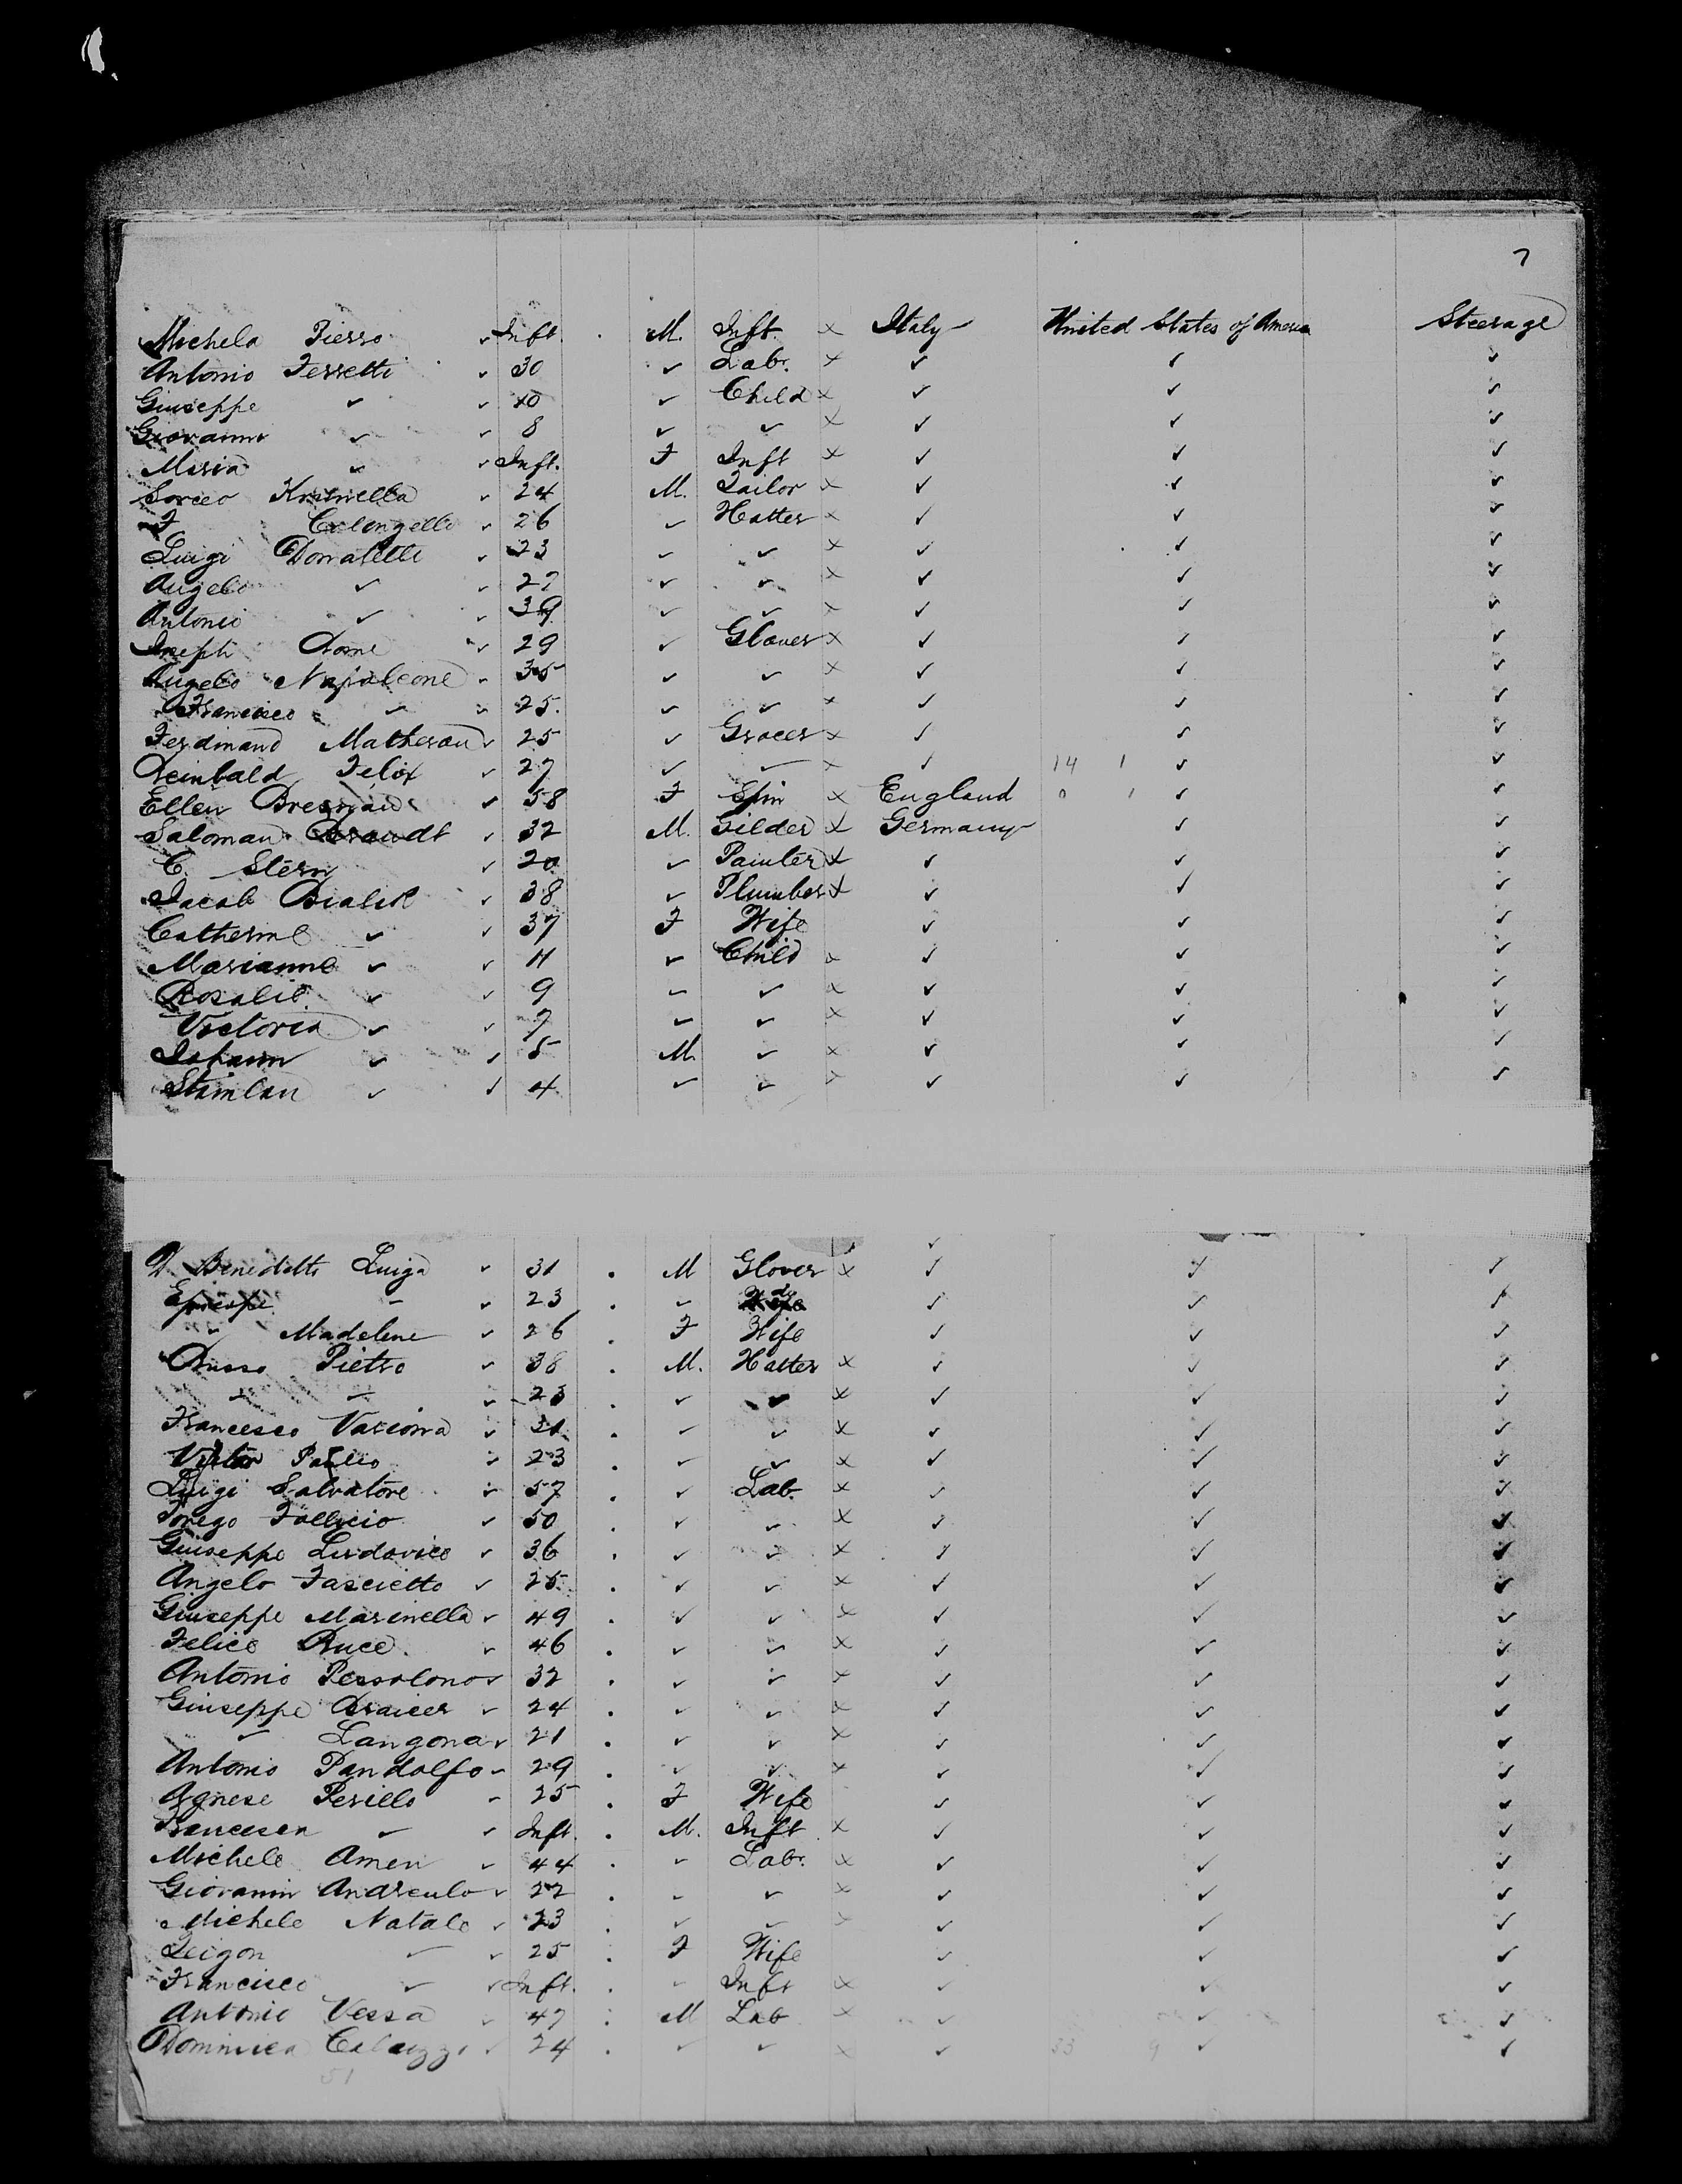 7
Michela Pierro ✓ Inft. M. Inft. × Italy United States of America Steerage
Antonio Ferretti ✓ 30 ✓ Lab. × ✓ ✓ ✓
Giuseppe ✓ ✓ 10 ✓ Child × ✓ ✓ ✓
Giovanni ✓ ✓ 8 ✓ ✓ × ✓ ✓ ✓
Maria ✓ ✓ Inft. F Inft × ✓ ✓ ✓
24 M. Tailor × ✓ ✓ ✓
F ✓ 26 ✓ Hatter × ✓ ✓ ✓
Luigi Donatelli ✓ 23 ✓ ✓ × ✓ ✓ ✓
Angelo ✓ ✓ 27 ✓ ✓ × ✓ ✓ ✓
Antonio ✓ ✓ 39 ✓ ✓ × ✓ ✓ ✓
Joseph ✓ 29 ✓ Glover × ✓ ✓ ✓
Angelo Napoleone ✓ 35 ✓ ✓ × ✓ ✓ ✓
Francisco ✓ ✓ 25. ✓ ✓ × ✓ ✓ ✓
Ferdinand Matherau ✓ 25 ✓ Grocer × ✓ ✓ ✓
Felix ✓ 27 ✓ ✓ × ✓ 14 1 ✓ ✓
Ellen Bresnau ✓ 58 F Spin × England 0 1 ✓ ✓
Saloman Brandt ✓ 32 M. Gilder × Germany ✓ ✓
C. Stern ✓ 20 ✓ Painter × ✓ ✓ ✓
Jacob Bialik ✓ 38 ✓ Plumber × ✓ ✓ ✓
Catherine ✓ ✓ 37 F Wife ✓ ✓ ✓
Marianne ✓ ✓ 11 ✓ Child × ✓ ✓ ✓
Rosalie ✓ ✓ 9 ✓ ✓ × ✓ ✓ ✓
Victoria ✓ ✓ 7 ✓ ✓ × ✓ ✓ ✓
Johann ✓ ✓ 5 M. ✓ × ✓ ✓ ✓
Stainlau ✓ ✓ 4 ✓ ✓ ✓ ✓ ✓
D. Benedetto Luiga ✓ 31 M Glover × ✓ ✓ ✓
✓ 23 ✓ ✓ ✓ ✓
✓ Madeline ✓ 26 F Wife ✓ ✓ ✓
Russo Pietro ✓ 38 M. Hatter × ✓ ✓ ✓
✓ ✓ ✓ 23 ✓ ✓ × ✓ ✓ ✓
Francesco ✓ 31 ✓ ✓ × ✓ ✓ ✓
✓ 23 ✓ ✓ × ✓ ✓ ✓
Luigi Salvatore ✓ 57 ✓ Lab. × ✓ ✓ ✓
✓ 50 ✓ ✓ × ✓ ✓ ✓
Giuseppe Ludovico ✓ 36 ✓ ✓ × ✓ ✓ ✓
Angelo Fascietto ✓ 25 ✓ ✓ × ✓ ✓ ✓
Giuseppe Marinella ✓ 49 ✓ ✓ × ✓ ✓ ✓
Felice Ruce ✓ 46 ✓ ✓ × ✓ ✓ ✓
Antonio Pessolono ✓ 32 ✓ ✓ × ✓ ✓ ✓
Giuseppe ✓ 24 ✓ ✓ × ✓ ✓ ✓
✓ Langona ✓ 21 ✓ ✓ × ✓ ✓ ✓
Antonio Pandolfo ✓ 29 ✓ ✓ × ✓ ✓ ✓
Agnese Perillo ✓ 25 F Wife ✓ ✓ ✓
Francesca ✓ ✓ Inft. M. Inft × ✓ ✓ ✓
Michele Amen ✓ 44 ✓ Lab. × ✓ ✓ ✓
Giovanni Andreulo ✓ 22 ✓ ✓ × ✓ ✓ ✓
Michele Natale ✓ 23 ✓ ✓ × ✓ ✓ ✓
✓ ✓ 25 F Wife ✓ ✓ ✓
Francisco ✓ ✓ Inft. ✓ Inft × ✓ ✓ ✓
Antonio Vessa ✓ 47 M Lab × ✓ ✓ ✓
Dominica ✓ 24 ✓ ✓ × ✓ 33 9 ✓ ✓
51